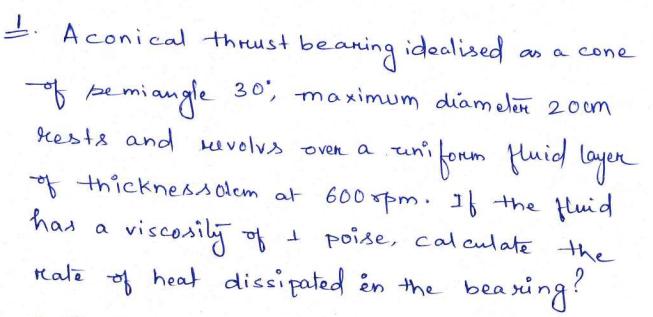 1. A conical thrust bearing idealised as a cone
of semiangle 30°, maximum diameter 20cm
rests and revolvs over a uniform fluid layer
of thickness 01cm at 600 rpm. If the fluid
has a viscosity of 1 poise, calculate the
rate of heat dissipated in the bearing?